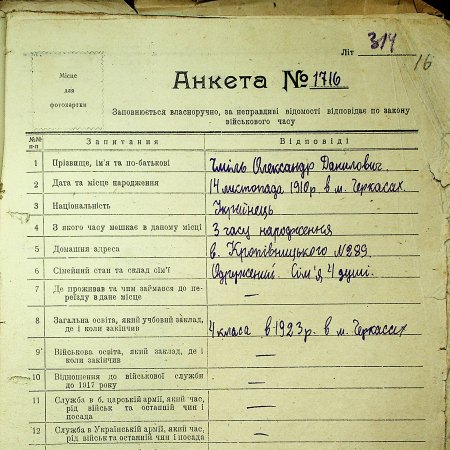 Літ 314
16
Місце
для
фотокартки
Анкета № 1716
Заповнюється власноручно, за неправдиві відомості відповідає по закону
військового часу
№№ п-п Запитання Відповіді
1 Прізвище, ім'я та по-батькові Чміль Олександр Данилович.
2 Дата та місце народження 14 листопада 1910 р. в м. Черкасах.
3 Національність Українець
4 З якого часу мешкає в даному місці З часу народження
5 Домашня адреса в. Кропівницького № 289.
6 Сімейний стан та склад сім'ї Одружений. Сім'я 4 душі.
7 Де проживав та чим займався до пе-
реїзду в дане місце —
8 Загальна освіта, який учбовий заклад,
де і коли закінчив 4 класа в 1923 р. в м. Черкассах
9 Військова освіта, який заклад, де і
коли закінчив —
10 Відношення до військової служби
до 1917 року —
11 Служба в б. царській армії, який час,
рід військ та останній чин і
посада —
12 Служба в Українській армії, який час,
рід військ та останній чин і посада —